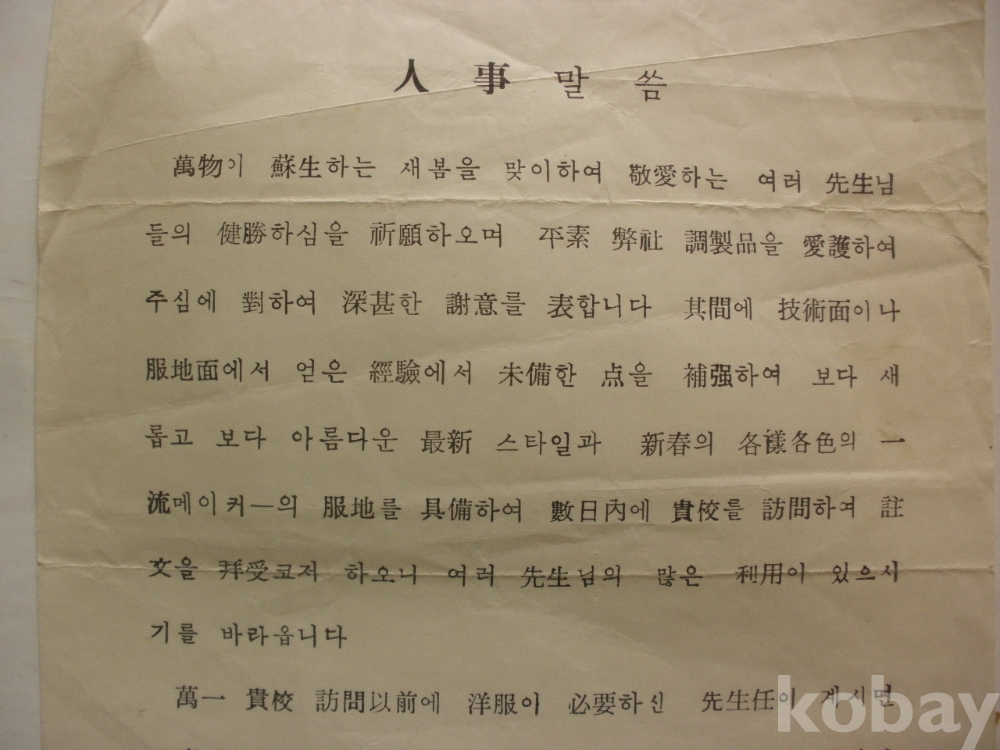 人事말씀
萬物이 蘇生하는 새봄을 맞이하여 敬愛하는 여러 先生님
들의 健勝하심을 祈願하오며 平素 弊社 調製品을 愛護하여
주심에 對하여 深甚한 謝意를 表합니다 其間에 技術面이나
服地面에서 얻은 經驗에서 未備한 点을 補强하여 보다 새
롭고 보다 아름다운 最新 스타일과 新春의 各樣各色의 一
流메이커―의 服地를 具備하여 數日內에 貴校를 訪問하여 註
文을 拜受코저 하오니 여러 先生님의 많은 利用이 있으시
기를 바라옵니다
萬一 貴校 訪問以前에 洋服이 必要하신 先生任이 계시면
kobay